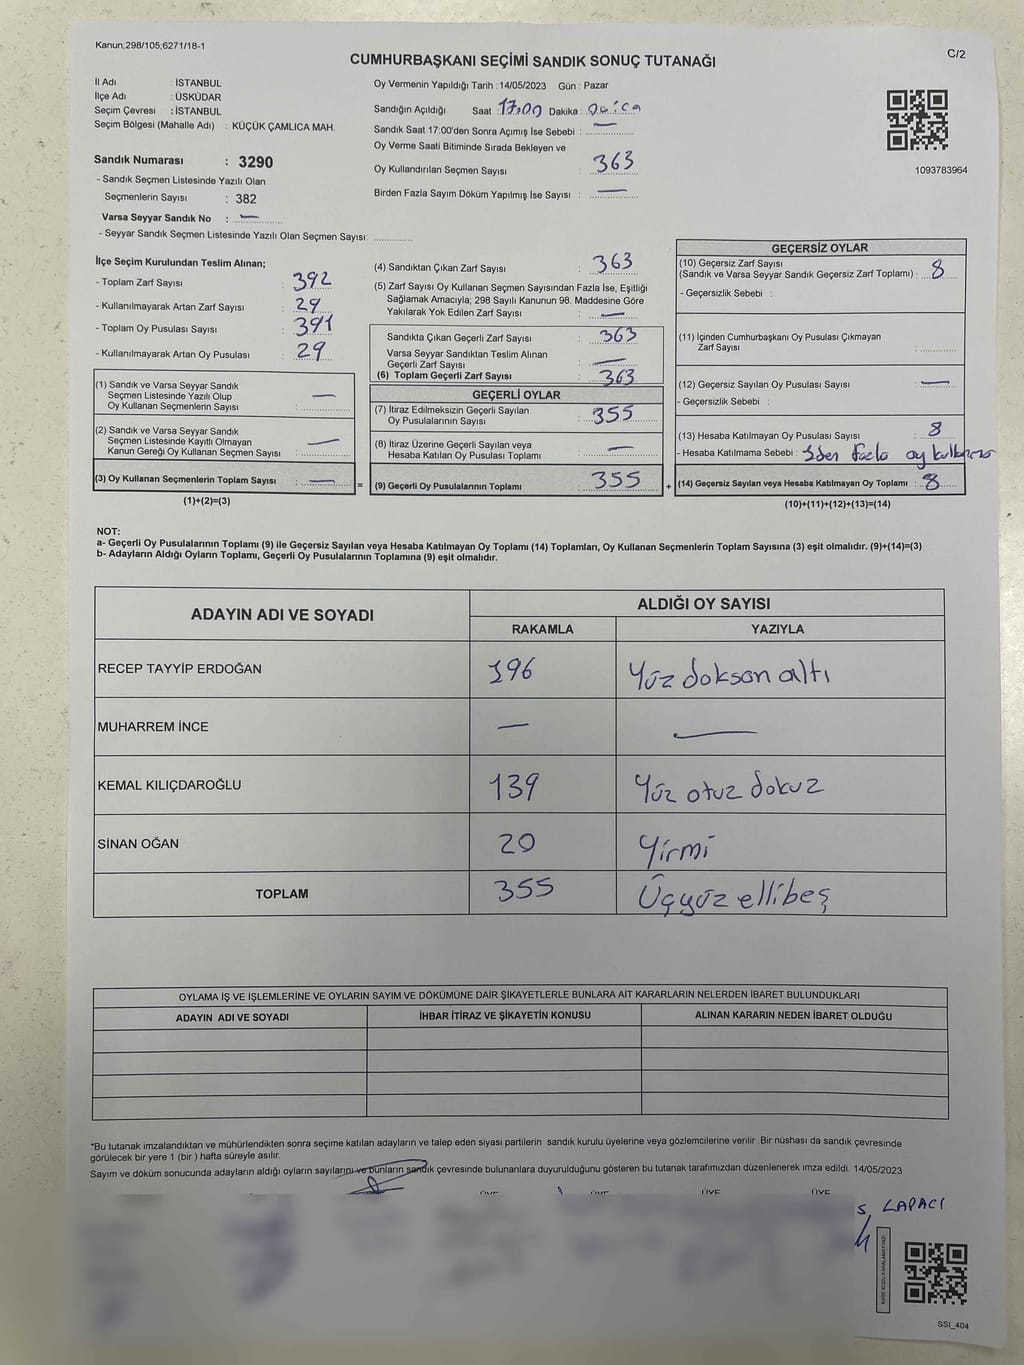 Kanun;298/105;6271/18-1
C/2
CUMHURBAŞKANI SEÇİMİ SANDIK SONUÇ TUTANAĞI
İl Adı : İSTANBUL
İlçe Adı : ÜSKÜDAR
Seçim Çevresi : İSTANBUL
Seçim Bölgesi (Mahalle Adı) : KÜÇÜK ÇAMLICA MAH.
Sandık Numarası : 3290
- Sandık Seçmen Listesinde Yazılı Olan
Seçmenlerin Sayısı : 382
Varsa Seyyar Sandık No : —
- Seyyar Sandık Seçmen Listesinde Yazılı Olan Seçmen Sayısı:
Oy Vermenin Yapıldığı Tarih : 14/05/2023 Gün : Pazar
Sandığın Açıldığı Saat : 17:00 Dakika :
Sandık Saat 17:00'den Sonra Açımış İse Sebebi : —
Oy Verme Saati Bitiminde Sırada Bekleyen ve
Oy Kullandırılan Seçmen Sayısı : 363
Birden Fazla Sayım Döküm Yapılmış İse Sayısı : —
1093783964
İlçe Seçim Kurulundan Teslim Alınan;
- Toplam Zarf Sayısı : 392
- Kullanılmayarak Artan Zarf Sayısı : 29
- Toplam Oy Pusulası Sayısı : 391
- Kullanılmayarak Artan Oy Pusulası : 29
(1) Sandık ve Varsa Seyyar Sandık
Seçmen Listesinde Yazılı Olup
Oy Kullanan Seçmenlerin Sayısı : —
(2) Sandık ve Varsa Seyyar Sandık
Seçmen Listesinde Kayıtlı Olmayan
Kanun Gereği Oy Kullanan Seçmen Sayısı : —
(3) Oy Kullanan Seçmenlerin Toplam Sayısı : — =
(1)+(2)=(3)
(4) Sandıktan Çıkan Zarf Sayısı : 363
(5) Zarf Sayısı Oy Kullanan Seçmen Sayısından Fazla İse, Eşitliği
Sağlamak Amacıyla; 298 Sayılı Kanunun 98. Maddesine Göre
Yakılarak Yok Edilen Zarf Sayısı : —
Sandıkta Çıkan Geçerli Zarf Sayısı : 363
Varsa Seyyar Sandıktan Teslim Alınan
Geçerli Zarf Sayısı : —
(6) Toplam Geçerli Zarf Sayısı : 363
GEÇERLİ OYLAR
(7) İtiraz Edilmeksizin Geçerli Sayılan
Oy Pusulalarının Sayısı : 355
(8) İtiraz Üzerine Geçerli Sayılan veya
Hesaba Katılan Oy Pusulası Toplamı : —
(9) Geçerli Oy Pusulalarının Toplamı : 355 +
GEÇERSİZ OYLAR
(10) Geçersiz Zarf Sayısı
(Sandık ve Varsa Seyyar Sandık Geçersiz Zarf Toplamı) : 8
- Geçersizlik Sebebi :
(11) İçinden Cumhurbaşkanı Oy Pusulası Çıkmayan
Zarf Sayısı :
(12) Geçersiz Sayılan Oy Pusulası Sayısı : —
- Geçersizlik Sebebi :
(13) Hesaba Katılmayan Oy Pusulası Sayısı : 8
- Hesaba Katılmama Sebebi : 1den fazla oy
(14) Geçersiz Sayılan veya Hesaba Katılmayan Oy Toplamı : 8
(10)+(11)+(12)+(13)=(14)
NOT:
a- Geçerli Oy Pusulalarının Toplamı (9) ile Geçersiz Sayılan veya Hesaba Katılmayan Oy Toplamı (14) Toplamları, Oy Kullanan Seçmenlerin Toplam Sayısına (3) eşit olmalıdır. (9)+(14)=(3)
b- Adayların Aldığı Oyların Toplamı, Geçerli Oy Pusulalarının Toplamına (9) eşit olmalıdır.
ADAYIN ADI VE SOYADI
ALDIĞI OY SAYISI
RAKAMLA YAZIYLA
RECEP TAYYİP ERDOĞAN 196 Yüz doksan altı
MUHARREM İNCE — —
KEMAL KILIÇDAROĞLU 139 Yüz otuz dokuz
SİNAN OĞAN 20 Yirmi
TOPLAM 355 Üçyüz ellibeş
OYLAMA İŞ VE İŞLEMLERİNE VE OYLARIN SAYIM VE DÖKÜMÜNE DAİR ŞİKAYETLERLE BUNLARA AİT KARARLARIN NELERDEN İBARET BULUNDUKLARI
ADAYIN ADI VE SOYADI İHBAR İTİRAZ VE ŞİKAYETİN KONUSU ALINAN KARARIN NEDEN İBARET OLDUĞU
*Bu tutanak imzalandıktan ve mühürlendikten sonra seçime katılan adayların ve talep eden siyasi partilerin sandık kurulu üyelerine veya gözlemcilerine verilir .Bir nüshası da sandık çevresinde
görülecek bir yere 1 (bir ) hafta süreyle asılır.
Sayım ve döküm sonucunda adayların aldığı oyların sayılarını ve bunların sandık çevresinde bulunanlara duyurulduğunu gösteren bu tutanak tarafımızdan düzenlenerek imza edildi. 14/05/2023
ÜYE ÜYE ÜYE ÜYE
S. LAPACI
KARE KODU KARALAMAYINIZ!
SSI_404